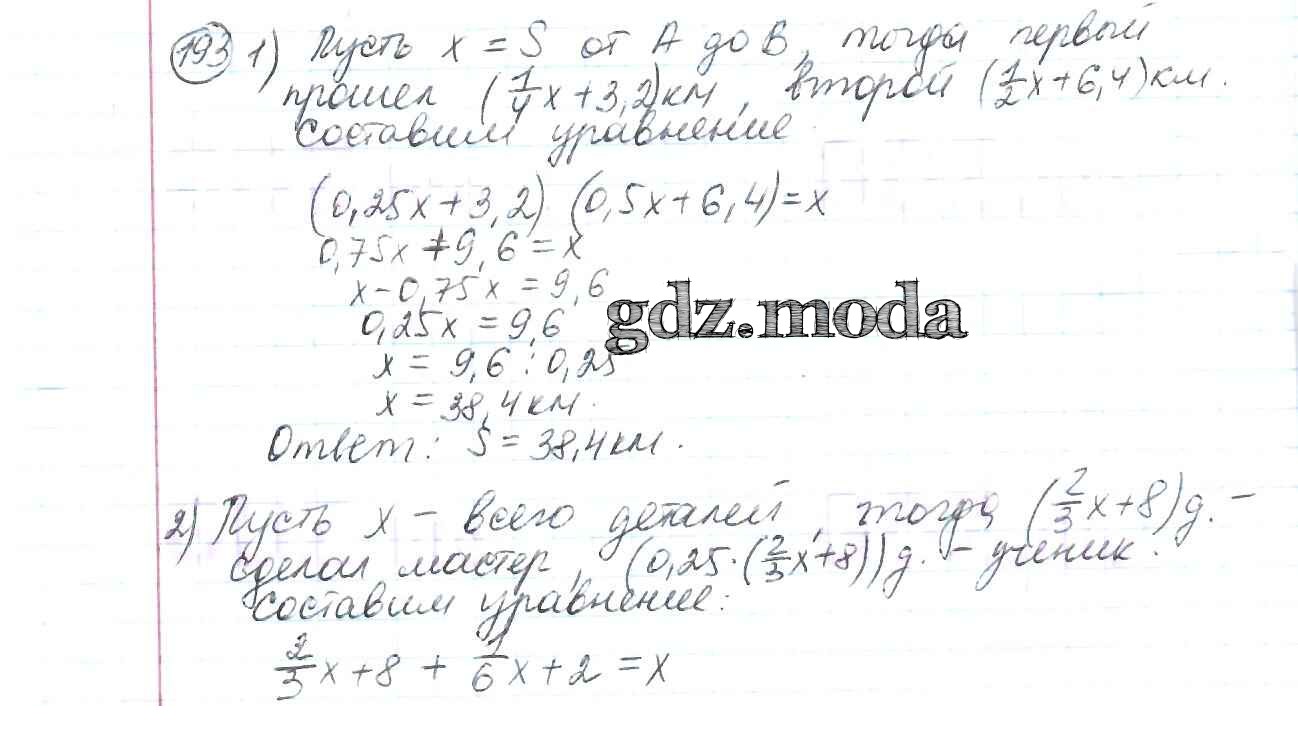 193 1) Пусть x = S от A до B, тогда первый
прошел (1/4x+3,2)км, второй (1/2x+6,4)км.
составим уравнение
(0,25x+3,2) (0,5x+6,4)=x
0,75x+9,6=x
x-0,75x=9,6
gdz.moda
0,25x=9,6
x= 9,6:0,25
x=38,4км.
Ответ: S=38,4км.
2) Пусть x - всего деталей, тогда (2/3x+8)д.-
сделал мастер, (0,25·(2/3x+8))д.-ученик.
составим уравнение:
2/3x+8+1/6x+2=x